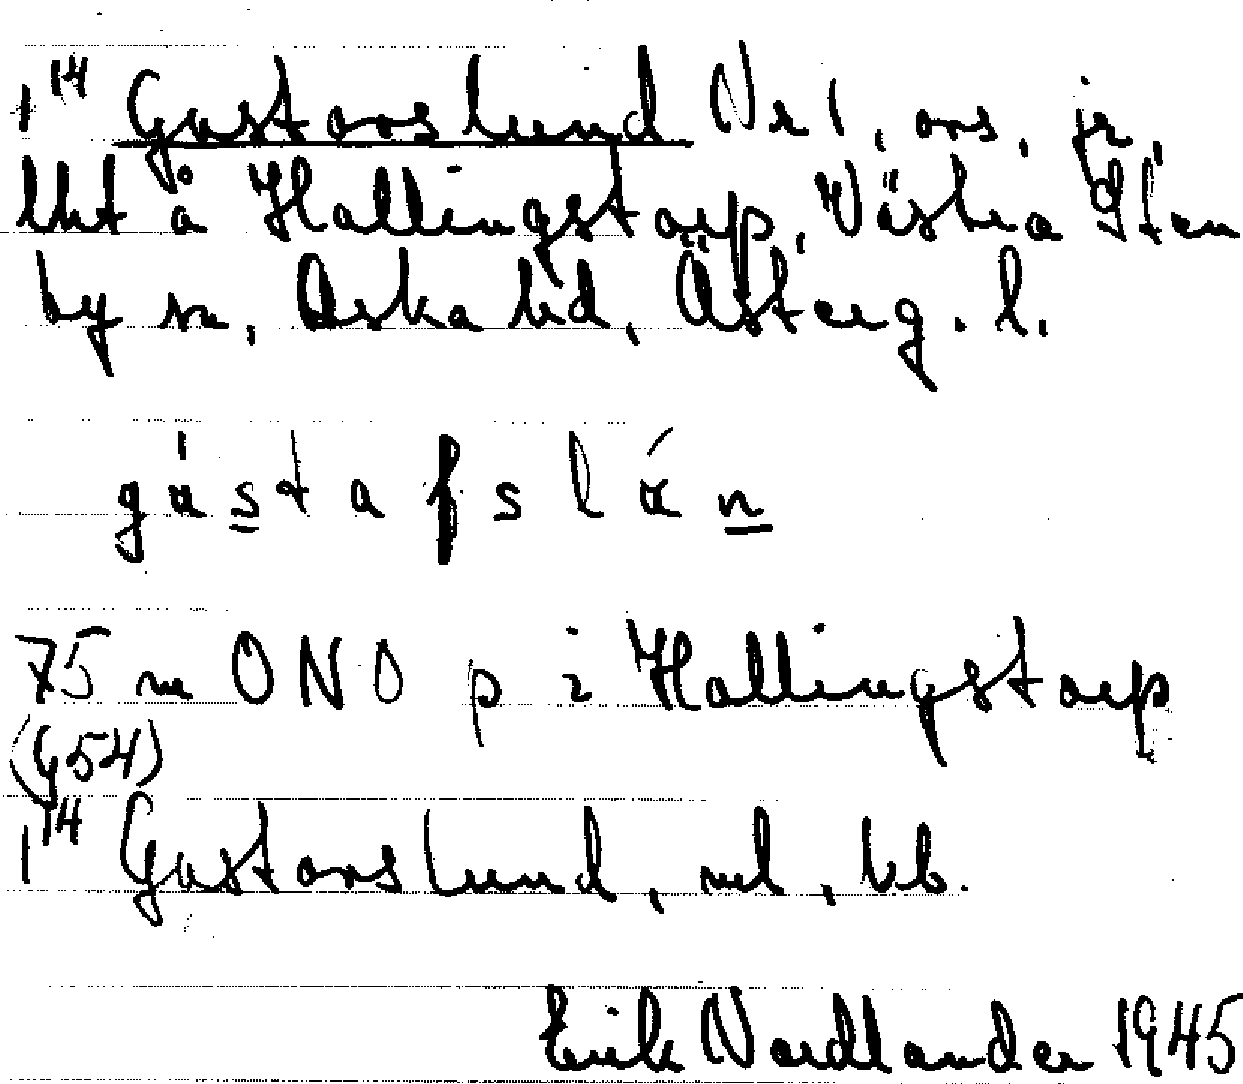 1¹⁴ Gustavslund Nr 1, avs. jr,
lht å Hallingstorp, Västra Sten
by sn, Aska hd, Österg. l.
gustafslún
75 m ONO p i Hallingstorp
(G54)
1¹⁴ Gustavslund, ml, bb.
Erik Nordlander 1945